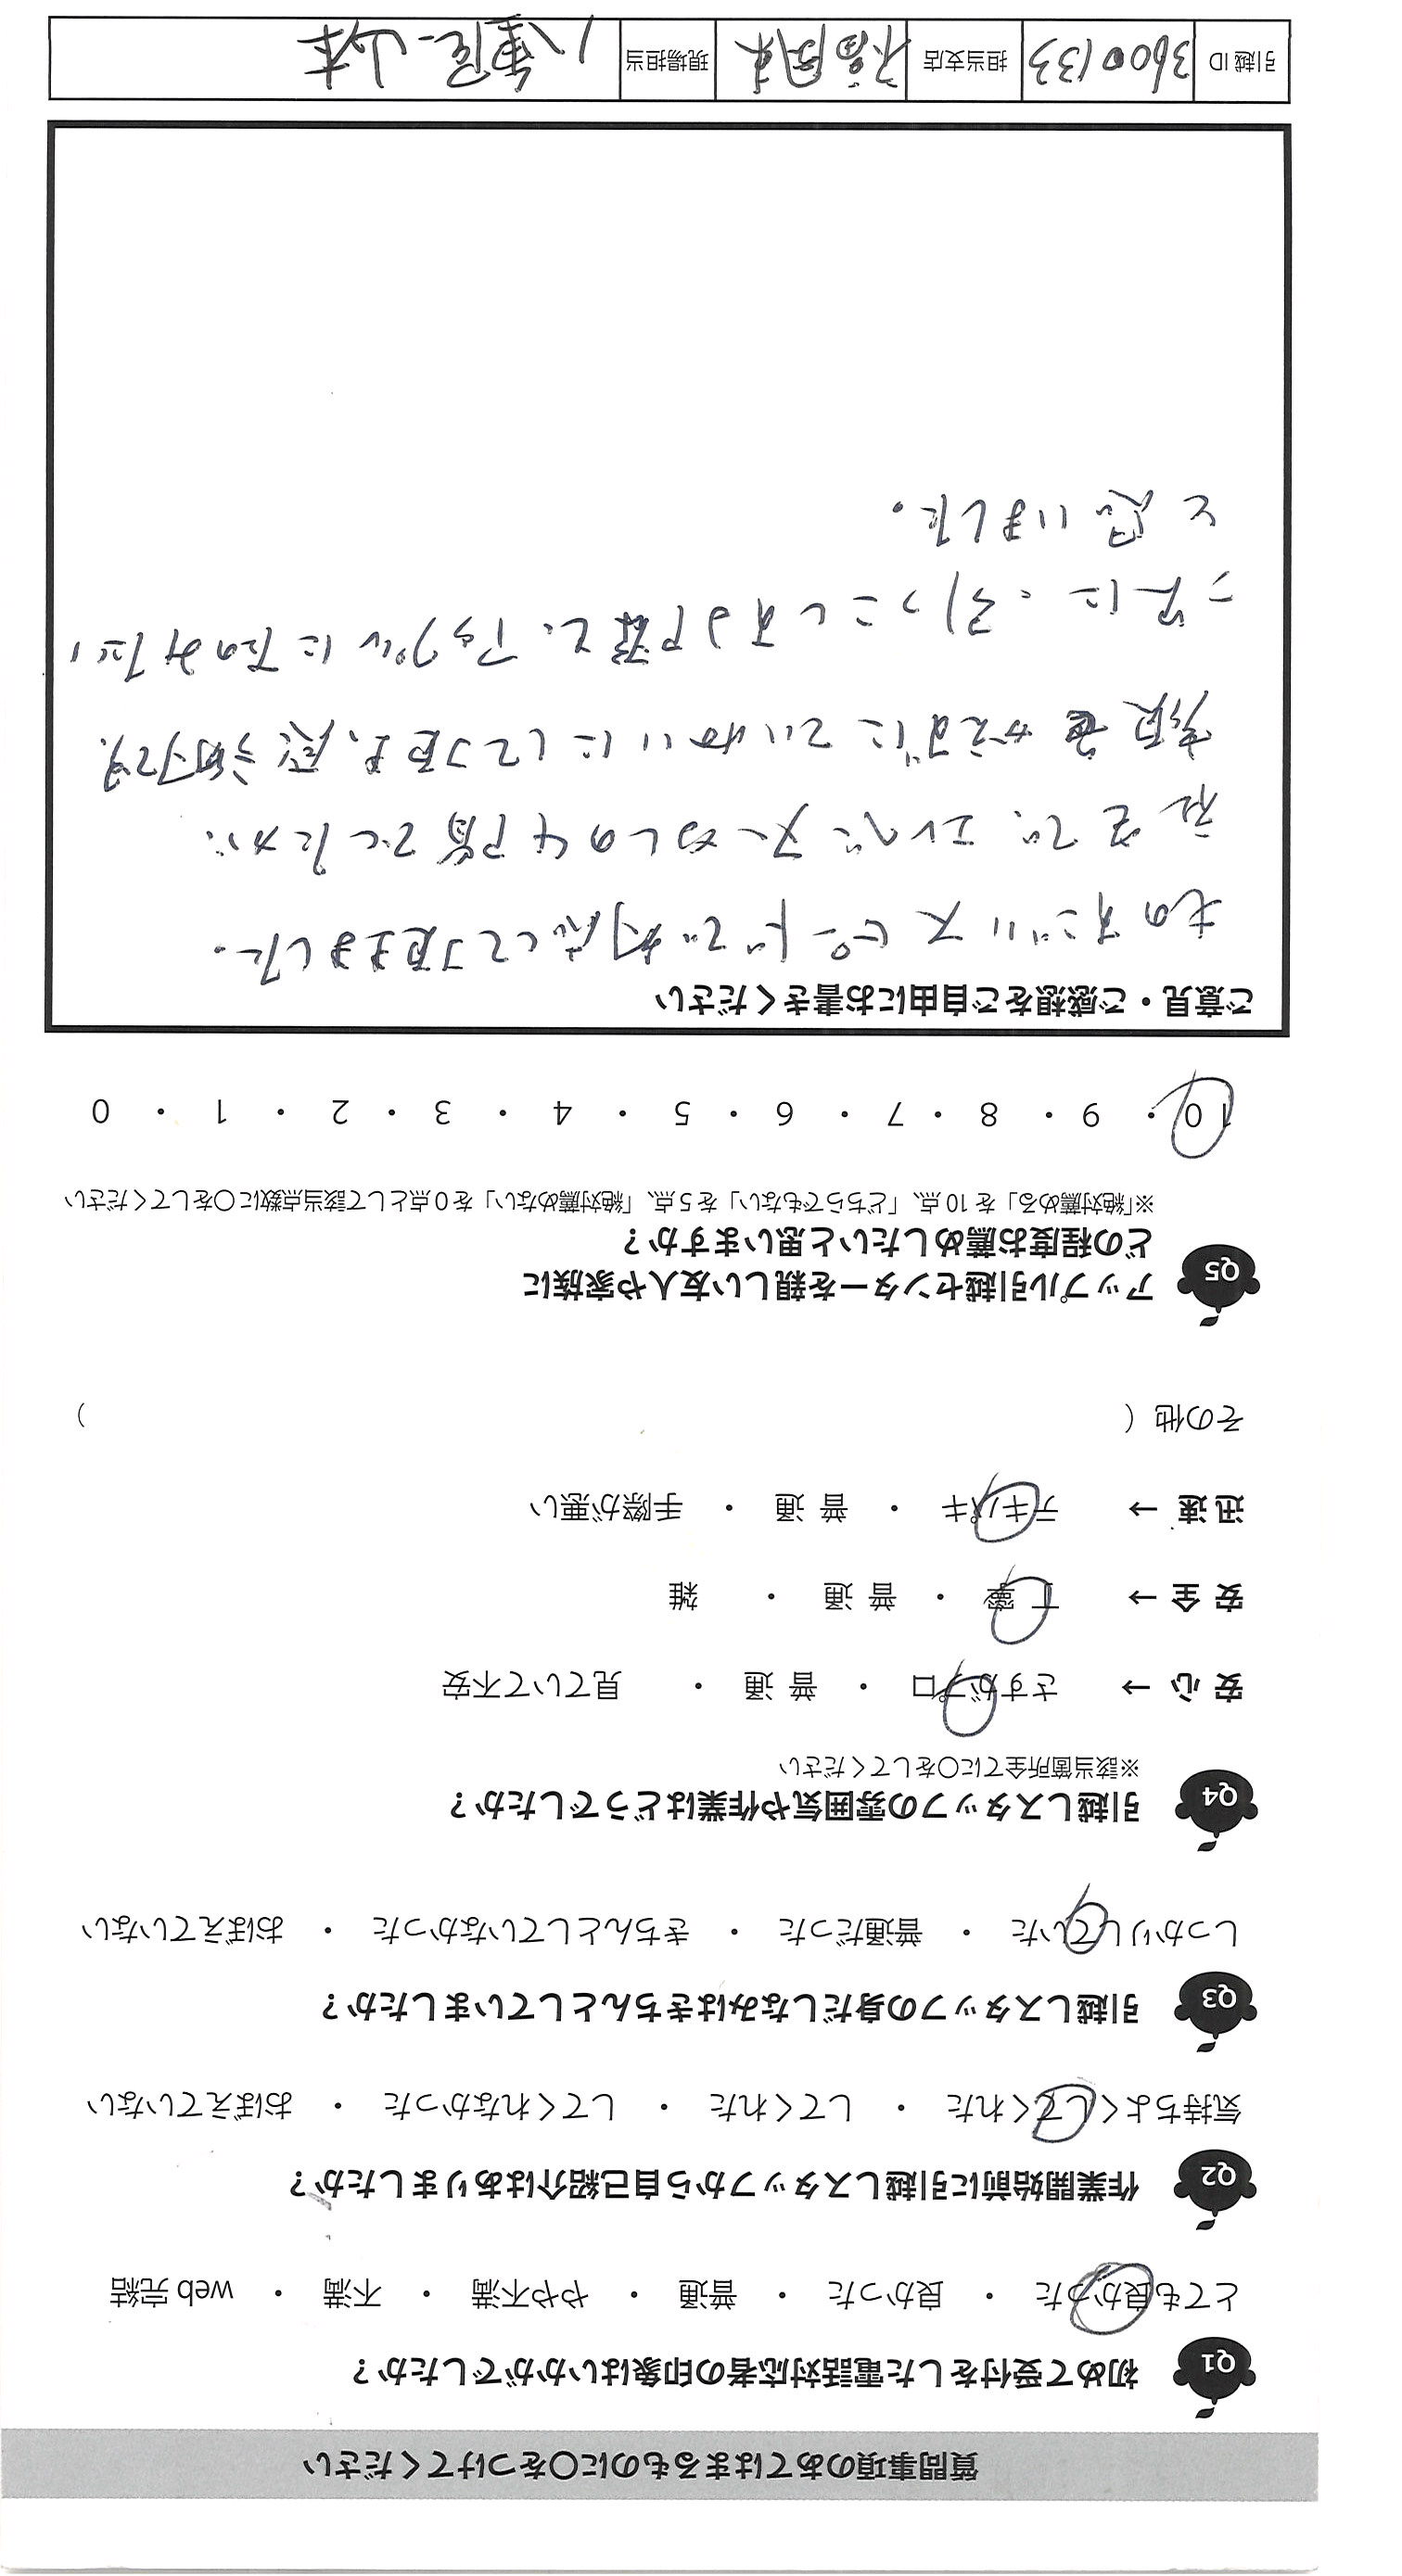 質問事項のあてはまるものに〇をつけてください
Q1 初めて受付をした電話対応者の印象はいかがでしたか？
とても良かった ・ 良かった ・ 普通 ・ やや不満 ・ 不満 ・ web 完結
Q2 作業開始前に引越しスタッフから自己紹介はありましたか？
気持ちよくしてくれた ・ してくれた ・ してくれなかった ・ おぼえていない
Q3 引越しスタッフの身だしなみはきちんとしていましたか？
しっかりしていた ・ 普通だった ・ きちんとしていなかった ・ おぼえていない
Q4 引越しスタッフの雰囲気や作業はどうでしたか？
※該当箇所全てに〇をしてください
安 心 → さすがプロ ・ 普 通 ・ 見ていて不安
安 全 → 丁 寧 ・ 普 通 ・ 雑
迅 速 → テキパキ ・ 普 通 ・ 手際が悪い
その他（ ）
Q5 アップル引越センターを親しい友人や家族に
どの程度お薦めしたいと思いますか？
※「絶対薦める」を 10 点、「どちらでもない」を 5 点、「絶対薦めない」を 0 点として該当点数に〇をしてください
10 ・ 9 ・ 8 ・ 7 ・ 6 ・ 5 ・ 4 ・ 3 ・ 2 ・ 1 ・ 0
ご意見・ご感想をご自由にお書きください
ものすごいスピードで対応して頂きました。
社宅で、エレベーターなしの4階でしたが、
顔色かえずにていねいにして頂き、感謝です。
次に、引っこしする際も、アップルにたのみたい
と思いました。
引越 ID 3600133 担当支店 福岡東 現場担当 八重尾、山本